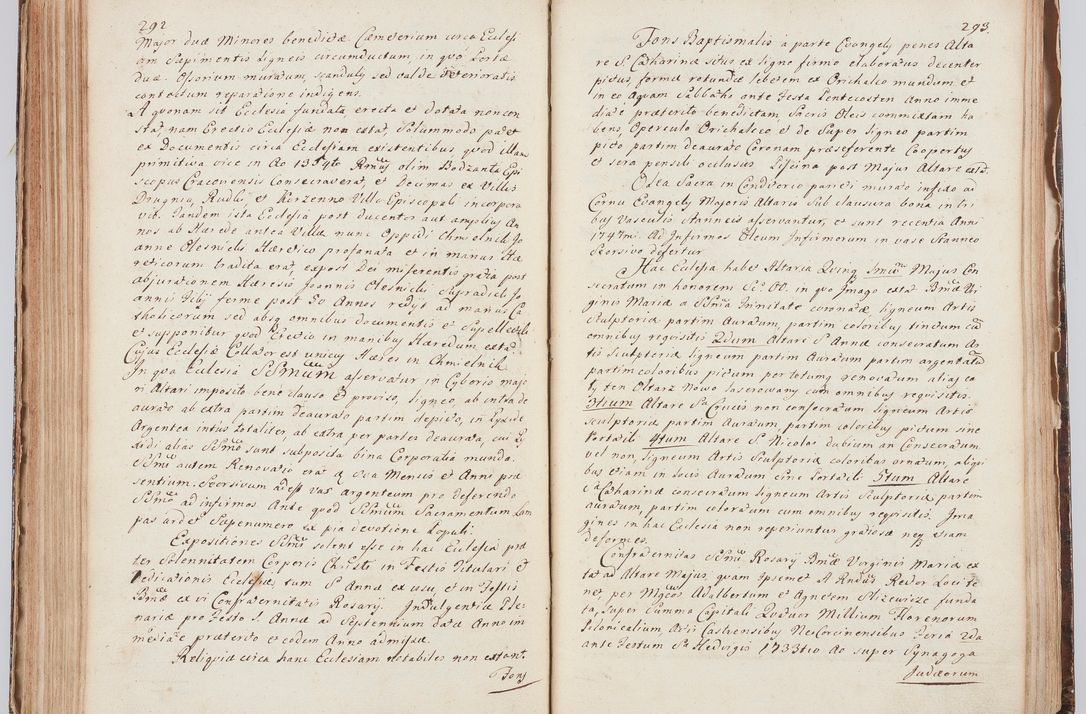 292
Major duæ Minores benedictæ Cæmeterium circa Ecclesi
am Sæpimentis ligneis circumductum, in quo Portæ
duæ. Ossorium muratum, scandulis sed valde deterioratis
contectum reparatione indigens.
A quonam sit Ecclesia fundata, erecta et dotata noncon
stat, nam Erectio Ecclesiæ non extat, Solummodo patet
ex Documentis circa Ecclesiam existentibus, quod illam
primitiva vice in Ao 1354to Rmus olim Bodzanta Epi
scopus Cracoviensis Consecraverat, et Decimas ex Villis
Drugnia, Rudki, et Korzenno Villa Episcopali incorpora
vit. Tandem ista Ecclesia post ducentos aut amplius An
nos ab Hærede antea Villæ nunc Oppidi Chmielnik Jo
anne Olesnicki Hæretico profanata et in manus Hæ
reticorum tradita erat, expost Dei miserentis gratia post
abjurationem Hæresis Joannis Olesnicki Supradicti Jo
annis Filij ferme post 50 Annos redijt ad manus Ca
tholicorum sed absq omnibus documentis et Supellectili
et supponitur quod Erectio in manibus Hæredum extat.
Cujus Ecclesiæ Collator est unicus Hæres in Chmielnik.
In qua Ecclesia SSmum asservatur in Cyborio majo
ri Altari imposito bene clauso et proviso, ligneo, ab intra de
aurato ab extra partim deaurato partim depicto, in Pyxide
Argentea intus totaliter, ab extra per partes deaurata, cui Py
xidi alias SSmo sunt subposita bina Corporalia munda.
SSmi autem Renovatio erat Mensis et Anni præ
sentium. Seorsivum adest vas argenteum pro deferendo
SSmo ad infirmos Ante quod SSmum Sacramentum Lam
pas ardet Supenumero ex pia devotione Populi.
Expositiones SSmi solent esse in hac Ecclesia præ
ter Solennitatem Corporis Christi in Festis Titulari et
Dedicationis Ecclesiæ, tum S. Annæ ex usu, et in Festis
Bmæ ex vi Confraternitatis Rosarij. Indulgentiæ Ple
nariæ pro Festo S. Annæ ad Septennium datæ Anno im
mediate præterito et eodem Anno admissæ.
Reliquiæ circa hanc Ecclesiam notabiles non extant.
Fons
293.
Fons Baptismalis a parte Evangely penes Alta
re S. Catharinæ situs ex ligno firmo elaboratus decenter
pictus, formæ rotundæ lebetem ex Orichalco mundum, et
in eo Aquam Sabbatho ante Festa Pentecosten Anno imme
diate præterito benedictam, Sacris Oleis commixtam ha
bens, Operculo Orichalceo et de Super ligneo partim
picto partim deaurato Coronam præseferente Coopertus
et sera pensili occlusus. Piscina post Majus Altare extat.
Olea Sacra in Conditorio parieti murato infixo ad
Cornu Evangely Majoris Altaris Sub clausura bona in tri
bus Vasculis Stanneis asservantur, et sunt recentia Anni
1747mi. Ad Infirmos Oleum Infirmorum in vase Stanneo
Seorsivo defertur.
Hæc Ecclesia habet Altaria Quinq Imum Majus Con
secratum in honorem SS. OO. in quo Imago extat Bmæ Vir
ginis Mariæ a SSma Trinitate coronatæ, ligneum Artis
Sculptoriæ partim Auratum, partim coloribus tinctum cum
omnibus requisitis. 2dum Altare S. Annæ consecratum Ar
tis Sculptoriæ ligneum partim Auratum partim argentatum
partim coloribus pictum per totum renovatum alias ca
ły ten Ołtarz Nowo laserowany cum omnibus requisitis.
3tium Altare Sæ Crucis non consecratum ligneum Artis
Sculptoriæ partim Auratum, partim coloribus pictum sine
Portatili 4tum Altare S. Nicolai dubium an Consecratum,
vel non, ligneum Artis Sculptoriæ coloribus ornatum, aliqui
bus etiam in locis Auratum sine Portatili 5tum Altare
Sæ Catharinæ consecratum ligneum Artis Sculptoriæ, partim
auratum, partim coloratum cum omnibus requisitis. Ima
gines in hac Ecclesia non reperiuntur gratiosæ neq etiam
deformes.
Confraternitas SSmi Rosarij Bmæ Virginis Mariæ ex
tat ad Altare Majus, quam Ipsemet A Rndus Rector Loci te
net, per Mgcos Adalbertum et Agnetem Strzewisze funda
ta, super Summa Capitali Quatuor Millium Florenorum
Polonicalium, Actis Castrensibus Neocorcinensibus Feria 2da
ante Festum Sæ Hedvigis 1733tio Ao super Synagoga
Judæorum